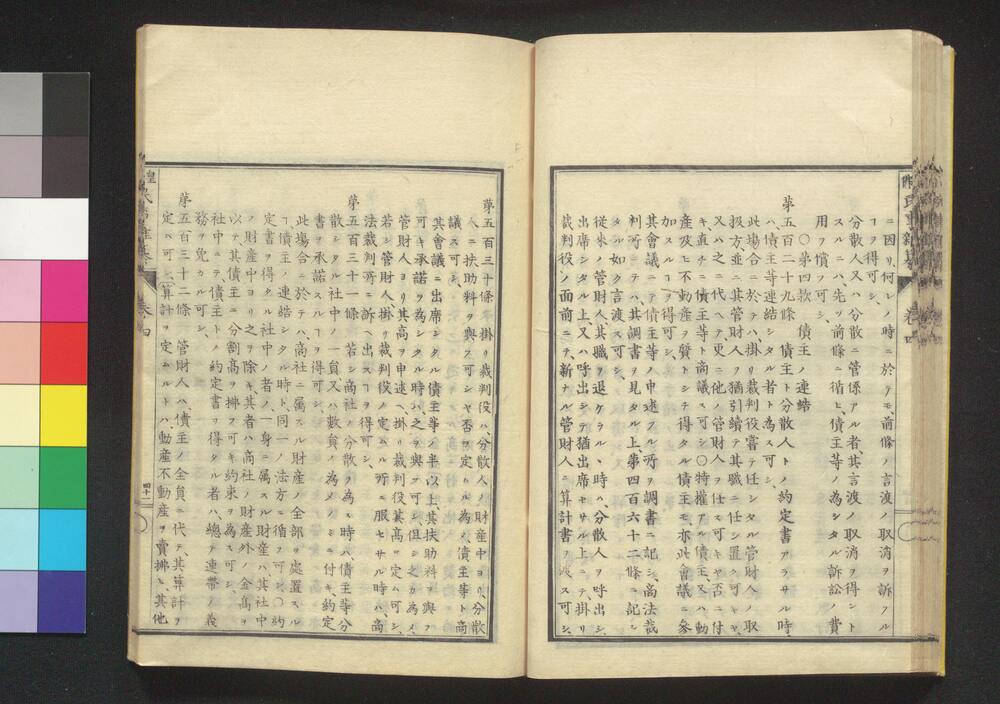 ニ因リ何レノ時ニ於テモ前條ノ言渡ノ取消ヲ訴フル
ヿヲ得可シ、
分散人又ハ分散ニ管係アル者其言渡ノ取消ヲ得ント
スルニハ、先ツ前條ニ循ヒ債主等ノ為シタル訴訟ノ費
用ヲ償フ可シ、
〇第四款 債主ノ連結
第五百二十九條 債主ト分散人トノ約定書アラサル時
ハ、債主等連結シタル者ト為ス可シ、
此場合ニ於テハ、掛リ裁判役嘗テ任シタル管財人ノ取
扱方並ニ其管財人ヲ猶引續テ其職ニ任シ置ク可キヤ、
又ハ之ニ代ヘテ更ニ他ノ管財人ヲ任ス可キヤ否ニ付
キ、直チニ債主等ト商議ス可シ〇特權アル債主、又ハ動
産及ヒ不動産ヲ質トシテ得タル債主モ、亦此會議ニ參
加スルヿヲ得可シ、
其會議ニテ債主等ノ申述フル所ヲ調書ニ記シ、商法裁
判所ニテハ、其調書ヲ見タル上第四百六十二條ニ記シ
タル如ク言渡ス可シ、
從來ノ管財人其職ヲ退ケラルヽ時ハ、分散人ヲ呼出シ、
出席シタル上又ハ呼出シテ猶出席セサル上ニテ、掛リ
裁判役ノ面前ニテ、新ナル管財人ニ算計書ヲ渡ス可シ、
第五百三十條 掛リ裁判役ハ、分散人ノ財産中ヨリ、分散
人ニ扶助料ヲ與フ可シヤ否ヲ定ムル為メ、債主等ト商
議ス可シ、
其會議ニ出席シタル債主等ノ半以上、其扶助料ヲ與フ
可キ承諾ヲ為シタル時ハ之ヲ與フ可シ、但シ之カ為メ、
管財人ヨリ其高ヲ申述ヘ、掛リ裁判役其高ヲ定ム可シ、
若シ管財人掛リ裁判役ノ定ムル所ニ服セサル時ハ、商
法裁判所ニ訴ヘ出スヿヲ得可シ、
第五百三十一條 若シ商社ノ分散ヲ為ス時ハ債主等分
散シタル社中ノ一員又ハ數員ノ為メノミニ付キ、約定
書ヲ承諾スルヿヲ得可シ、
此場合ニ於テハ、商社ニ屬スル財産ノ全部ヲ處置スル
ヿ債主ノ連結シタル時ト、同一ノ法方ニ循フ可シ〇約
定書ヲ得タル社中ノ者ノ、一身ニ属スル財産ハ其社中
ノ財産中ヨリ之ヲ除キ、其者ハ商社ノ財産外ノ金高ヲ
以テ、其債主ニ分割高ヲ拂フ可キ約束ヲ為ス可シ、
社中ニテ債主トノ約定書ヲ得タル者ハ、總テ連帶ノ義
務ヲ免カル可シ、
第五百三十二條 管財人ハ、債主ノ全員ニ代テ、其算計ヲ
定ム可シ〔算計ヲ定ムルトハ、動産不動産ヲ賣拂ヒ其他
卷四
四十一